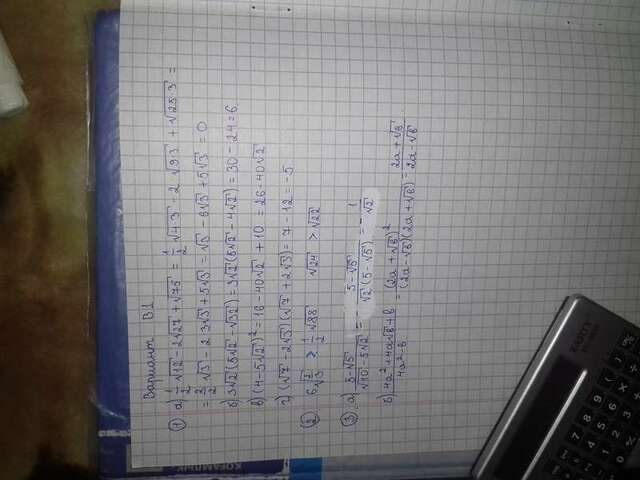 Вариант В1
① а) 1/2 √12 - 2√27 + √75 = 1/2 √4·3 - 2 √9·3 + √25·3 =
= 2/2 √3 - 2·3√3 + 5√3 = √3 - 6√3 + 5√3 = 0
б) 3√2 (5√2 - √32) = 3√2 (5√2 - 4√2) = 30 - 24 = 6
в) (4-5√2)² = 16 - 40√2 + 10 = 26 - 40√2
г) (√7 - 2√3)(√7 + 2√3) = 7 - 12 = -5
② 6√2/3 > 1/2 √88 √24 > √22
③ а) 5-√5 / √10 - 5√2 = 5-√5 / √2 (5-√5) = - 1/√2
б) 4a² + 4a√b + b / 4a² - b = (2a + √b)² / (2a-√b)(2a+√b) = 2a+√b / 2a-√b